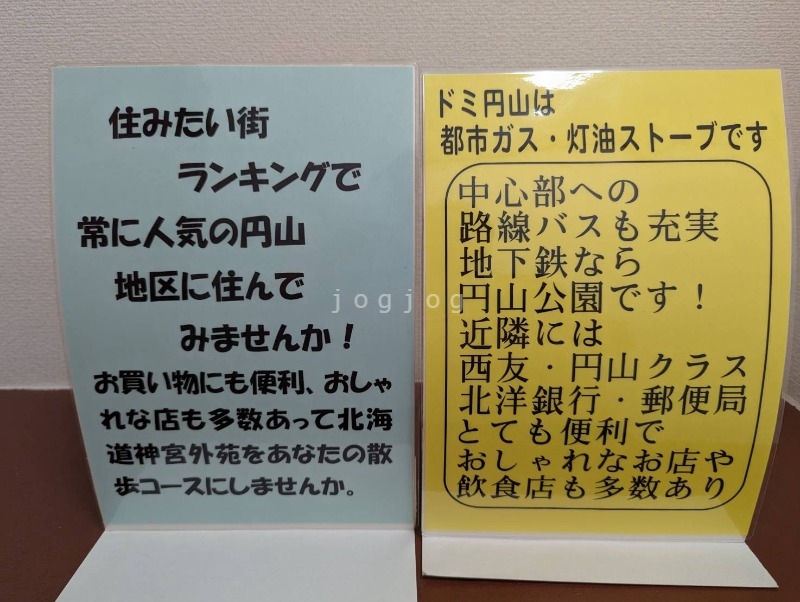 住みたい街
ランキングで
常に人気の円山
地区に住んで
みませんか！
お買い物にも便利、おしゃ
れな店も多数あって北海
道神宮外苑をあなたの散
歩コースにしませんか。
ドミ円山は
都市ガス・灯油ストーブです
中心部への
路線バスも充実
地下鉄なら
円山公園です！
近隣には
西友・円山クラス
北洋銀行・郵便局
とても便利で
おしゃれなお店や
飲食店も多数あり
jogjog